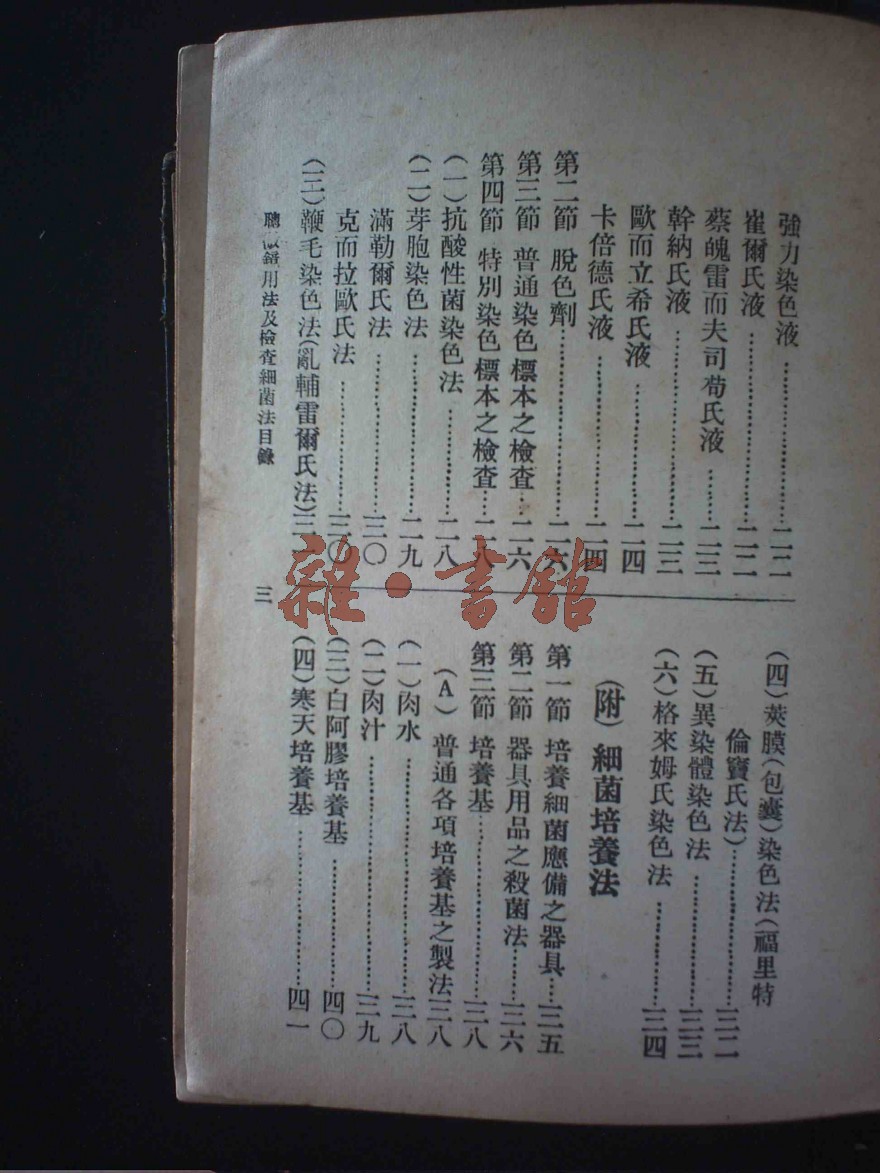 強力染色液………二二
崔爾氏液………二二
蔡魄雷而夫司荀氏液………二三
幹納氏液………二三
歐而立希氏液………二四
卡倍德氏液………二四
第二節 脫色劑………二六
第三節 普通染色標本之檢查…二六
第四節 特別染色標本之檢查…二八
(一)抗酸性菌染色法………二八
(二)芽胞染色法………二九
滿勒爾氏法………三〇
克而拉歐氏法………三〇
(三)鞭毛染色法(亂輔雷爾氏法)三一
(四)莢膜(包囊)染色法(福里特
倫寶氏法)………三二
(五)異染體染色法………三三
(六)格來姆氏染色法………三四
(附)細菌培養法
第一節 培養細菌應備之器具…三五
第二節 器具用品之殺菌法……三六
第三節 培養基………三八
(A) 普通各項培養基之製法三八
(一)肉水………三八
(二)肉汁………三九
(三)白阿膠培養基………四〇
(四)寒天培養基………四一
用法及檢查細菌法目錄
三
雜·書館